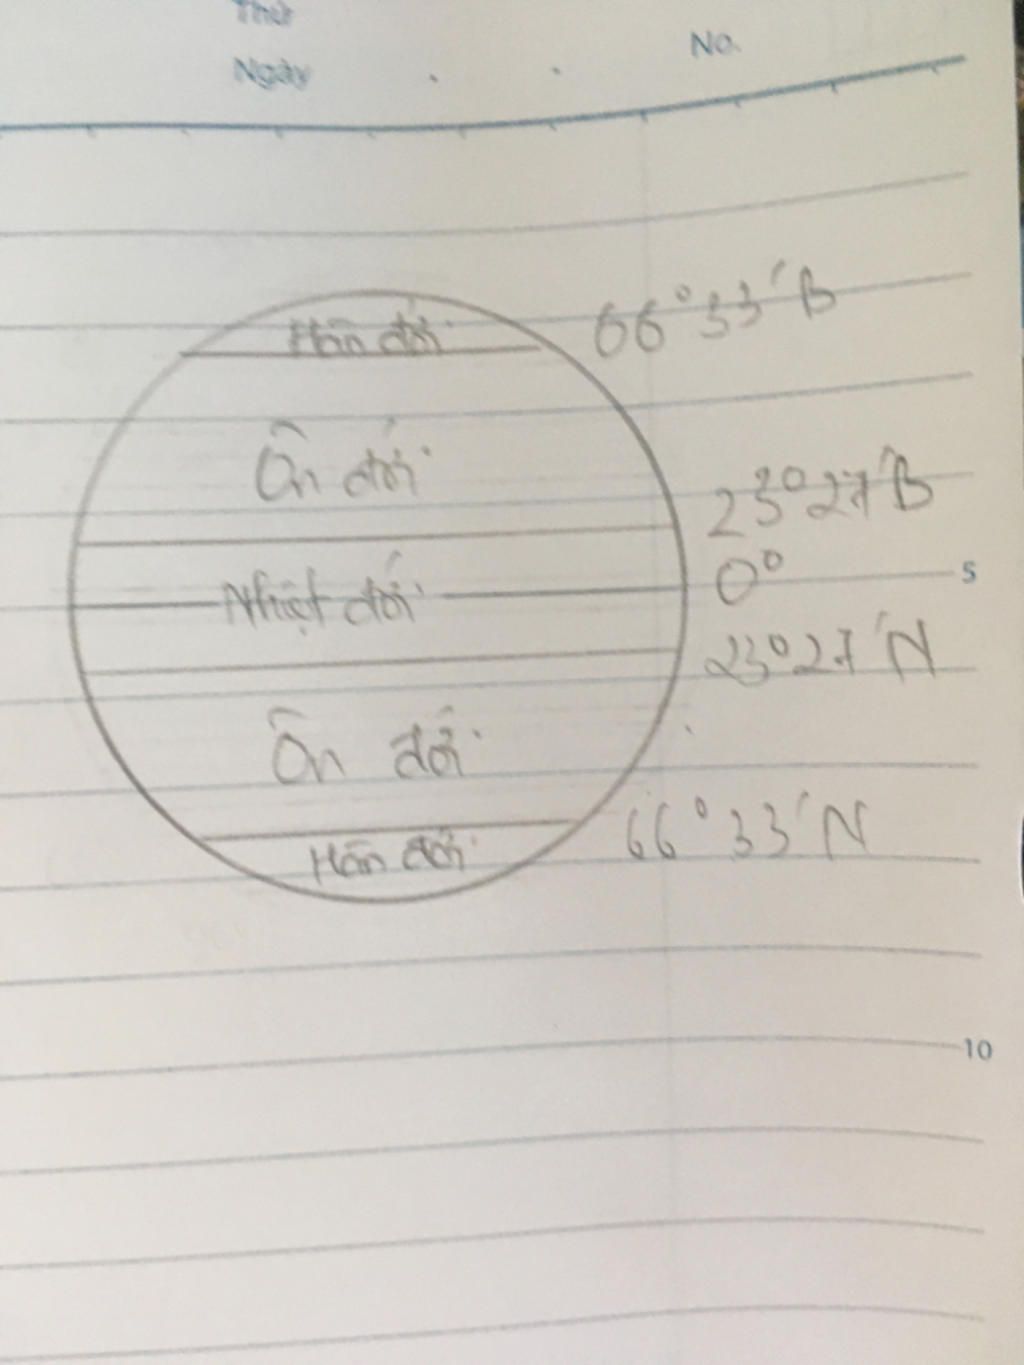 Thứ
Ngày
No.
Hàn đới
66°33'B
Ôn đới
23°27'B
Nhiệt đới
0°
5
23°27'N
Ôn đới
66°33'N
Hàn đới
10